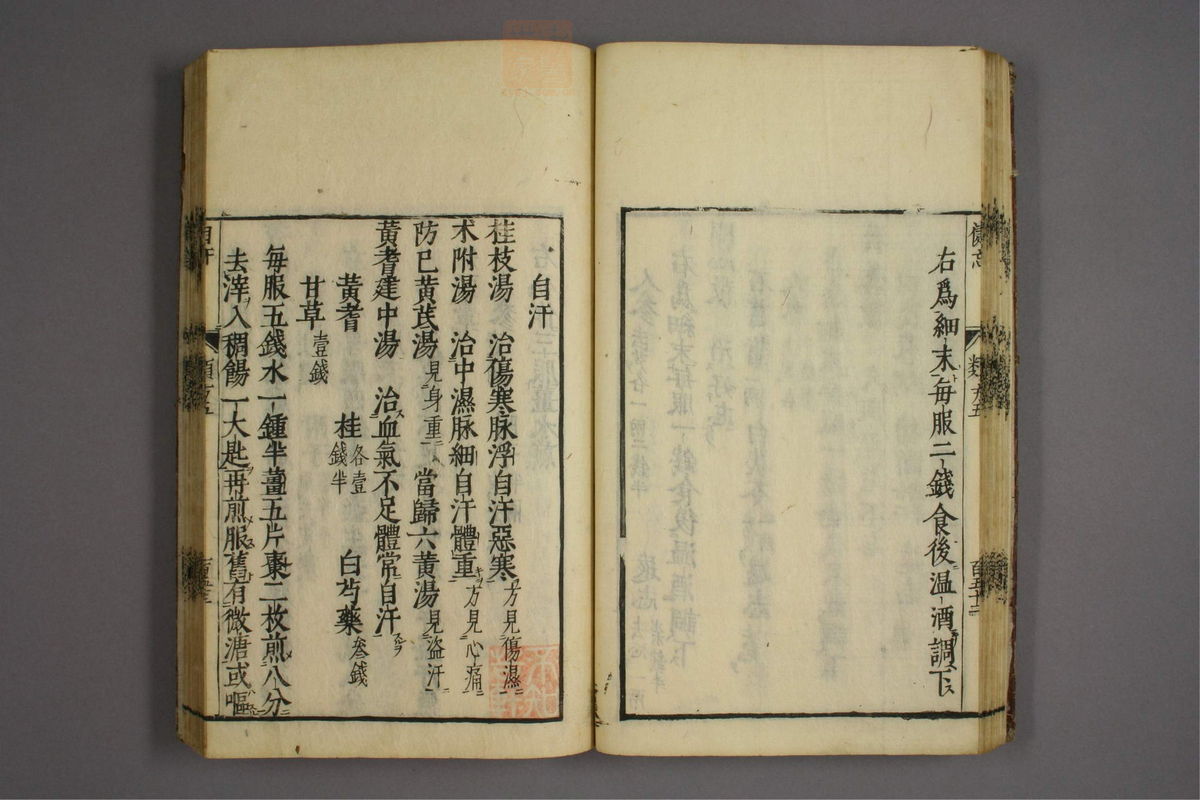 右爲細末毎服二錢食後温酒調下
自汗
桂枝湯 治傷寒脉浮自汗惡寒 方見傷濕
朮附湯 治中濕脉細自汗體重 方見心痛
防已黃茋湯 見身重 當歸六黃湯 見盜汗
黃耆建中湯 治血氣不足體常自汗
黃耆 桂 各壹錢半 白芍藥 叁錢
甘草 壹錢
毎服五錢水一鍾半薑五片棗二枚煎八分
去滓入稠餳一大匙再煎服舊有微溏或嘔